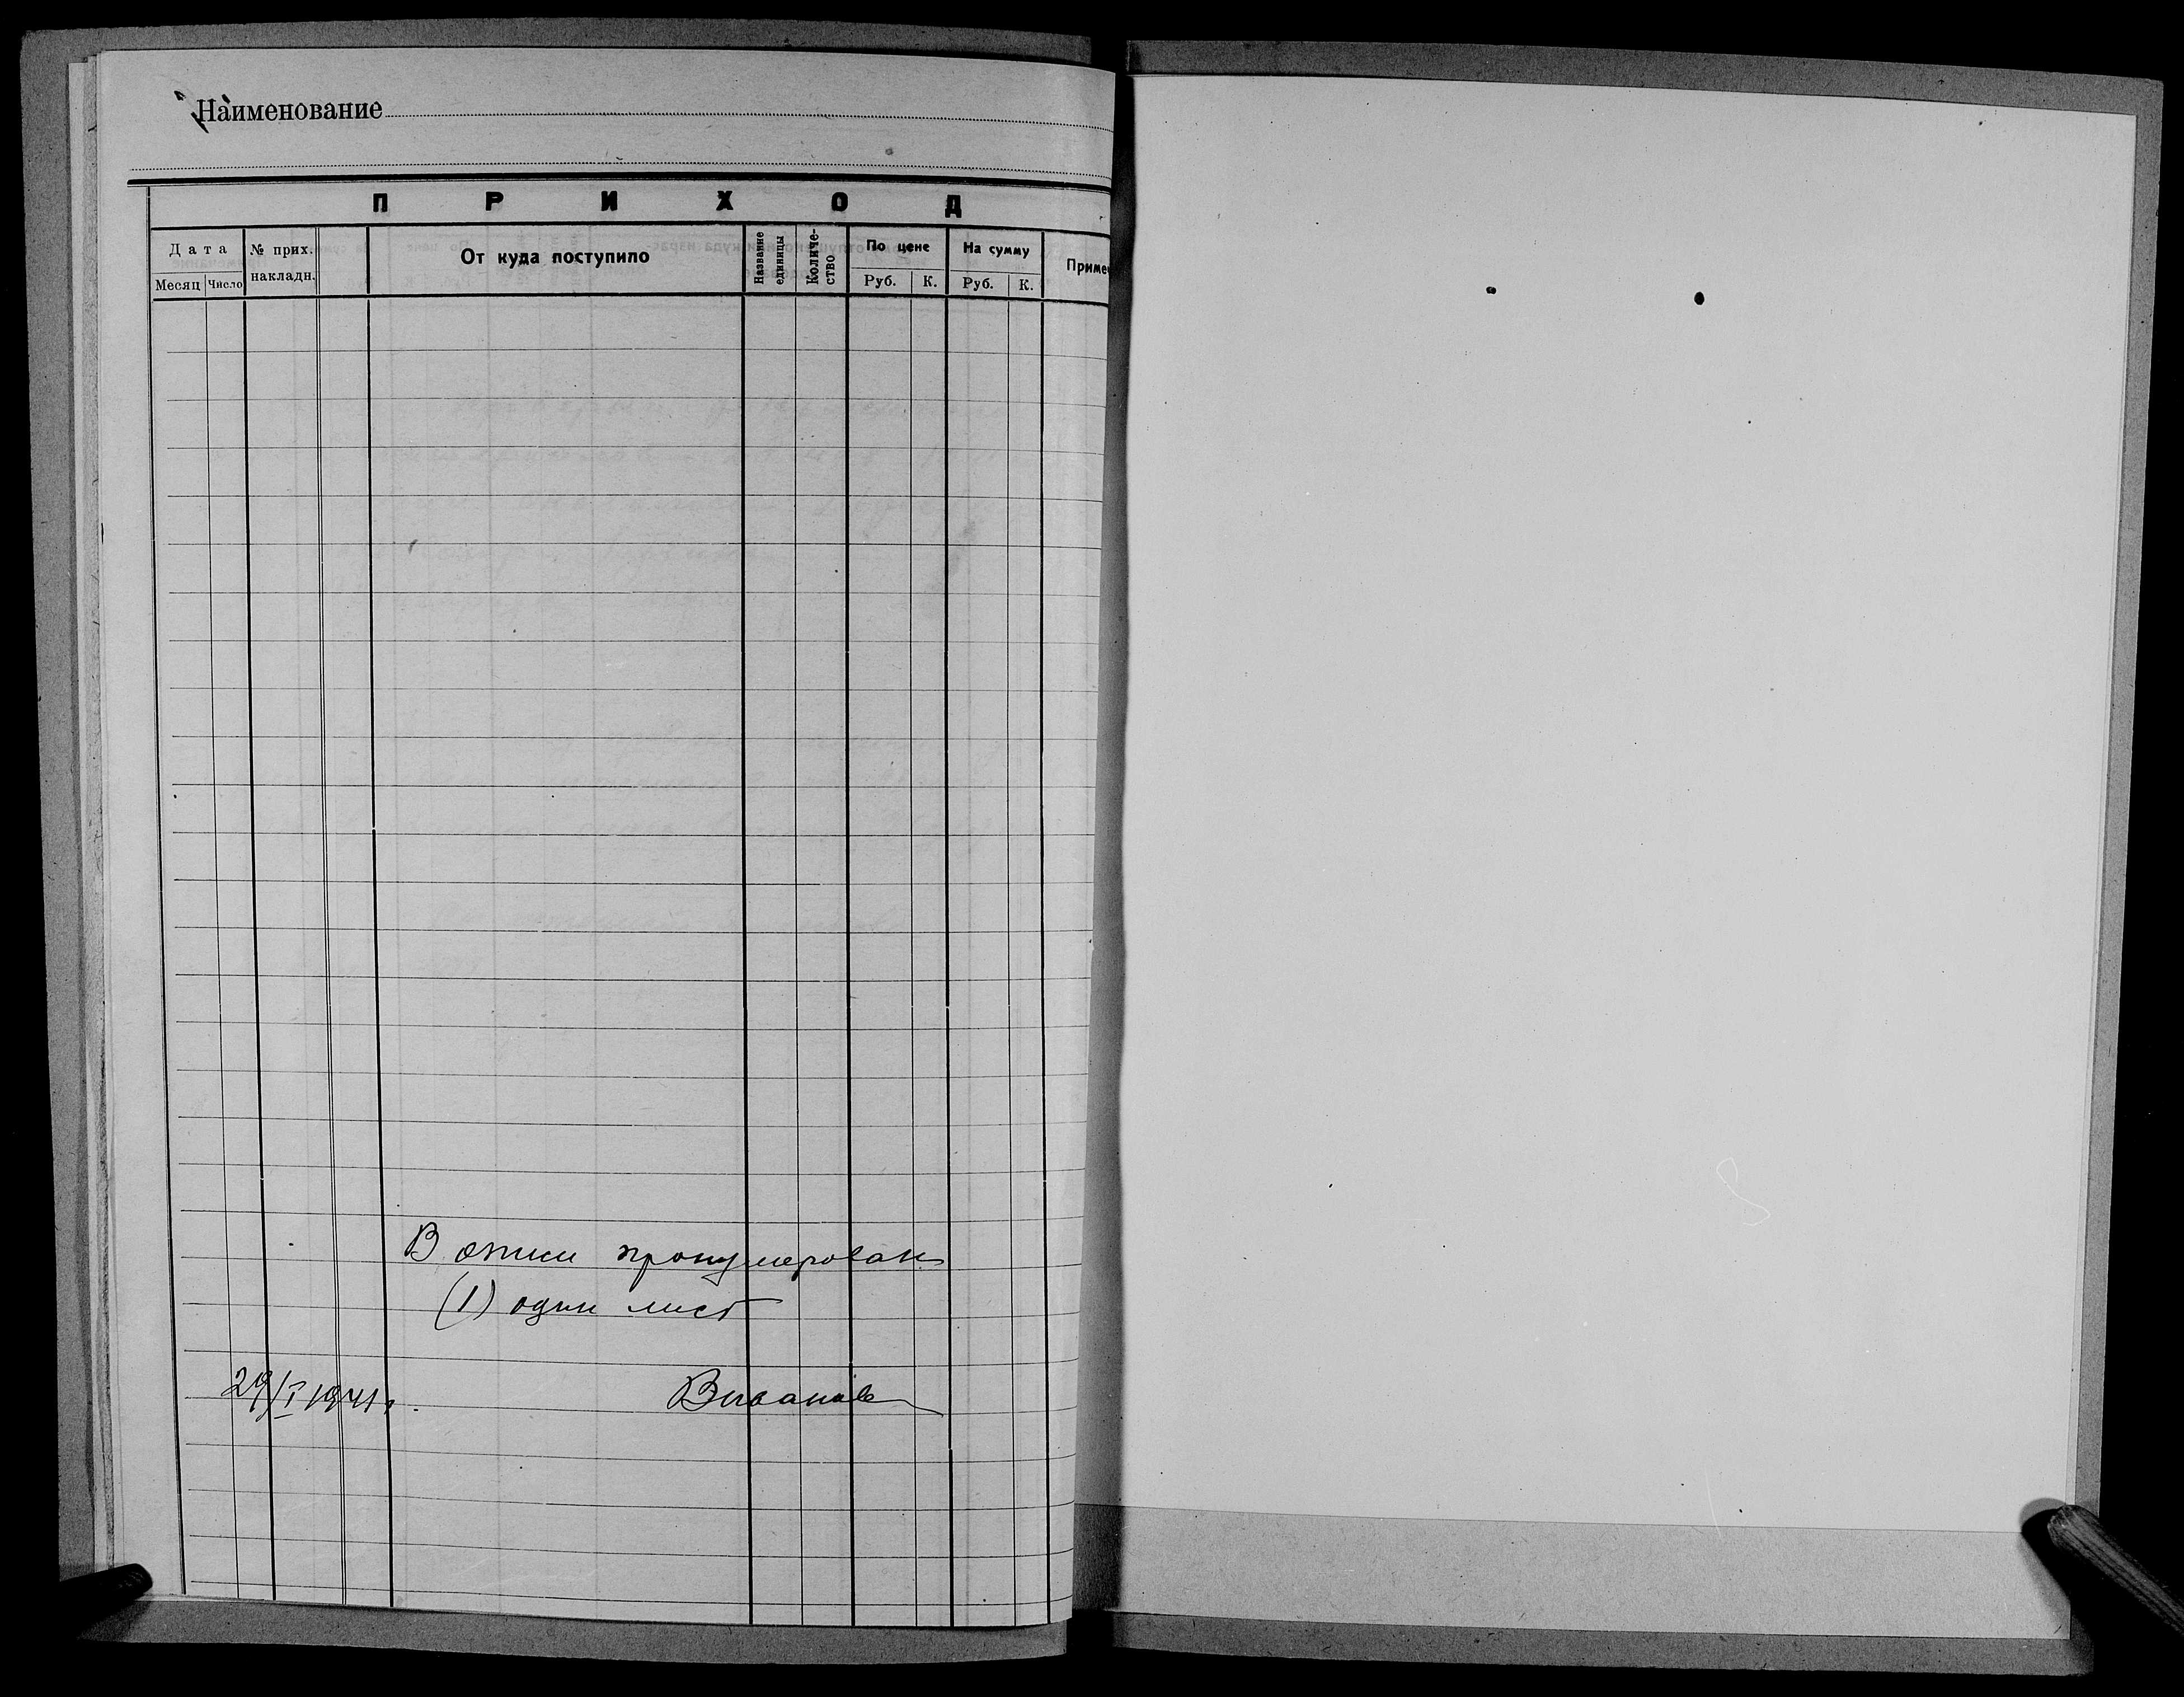 Наименование
ПРИХОД
Дата
№ прих. накладн.
От куда поступило
Название единицы
Количе-
ство
По цене
На сумму
Примеч
Месяц Число
Руб. К. Руб. К.
В описи пронумерован
(1) один лист
29/I 1941 г.